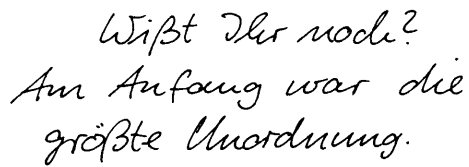 Wißt Ihr noch?
Am Anfang war die
größte Unordnung.